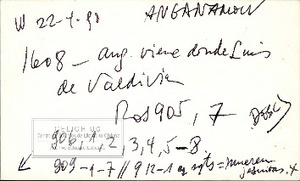 W 22-1-90 ANGANAMON
1608 - ang. viene donde Luis
de Valdivia
Ros 905, 7
906, 1, 2, 3, 4, 5-8.
909-1-7 // 912-1 sgts = mueren
jesuitas.